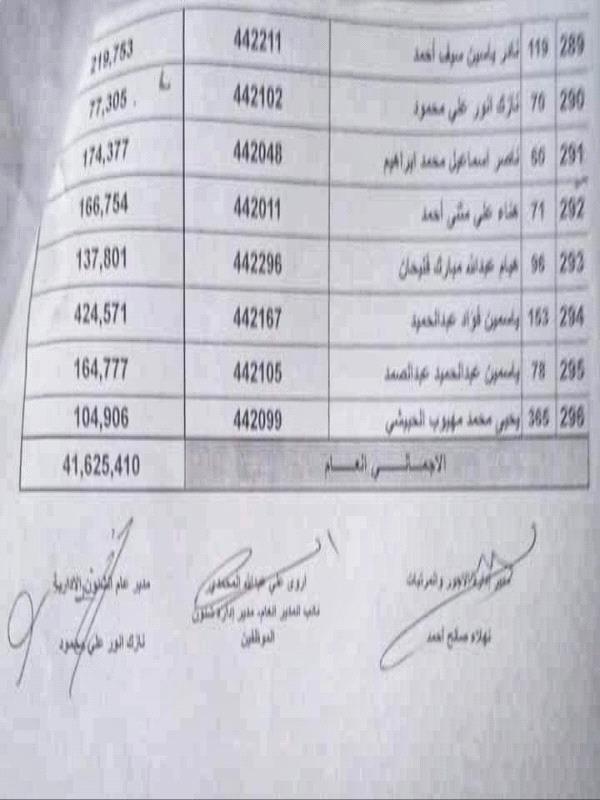 289 119 نادر ياسين سيف أحمد 442211 219,753
290 70 نازك انور علي محمود 442102 77,305
291 60 ناصر اسماعيل محمد ابراهيم 442048 174,377
292 71 هناء علي مثنى أحمد 442011 166,754
293 96 هيام عبدالله مبارك فنيحان 442296 137,801
294 153 ياسمين فؤاد عبدالحميد 442167 424,571
295 78 ياسمين عبدالحميد عبدالصمد 442105 164,777
296 365 يحيى محمد مهيوب الحبيشي 442099 104,906
الاجمالي العام 41,625,410
مدير إدارة الأجور والمرتبات
نهلاء صالح أحمد
اروى علي عبدالله المحمدي
نائب المدير العام، مدير إدارة شئون
الموظفين
مدير عام الشئون الادارية
نازك انور علي محمود